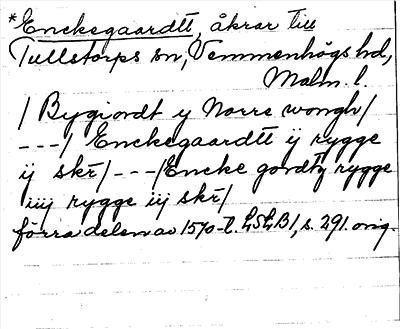 *Enckegaardtt, åkrar till
Tullstorps sn, Vemmenhögs hd,
Malm. l.
/ Bygiordt y Norre wongh/
---/ Enckegaardtt ij rygge
ij skr/---/Encke gordty rygge
iiij rygge iij skr/
förra delen av 1570-t. LSLB1, s. 291. orig.